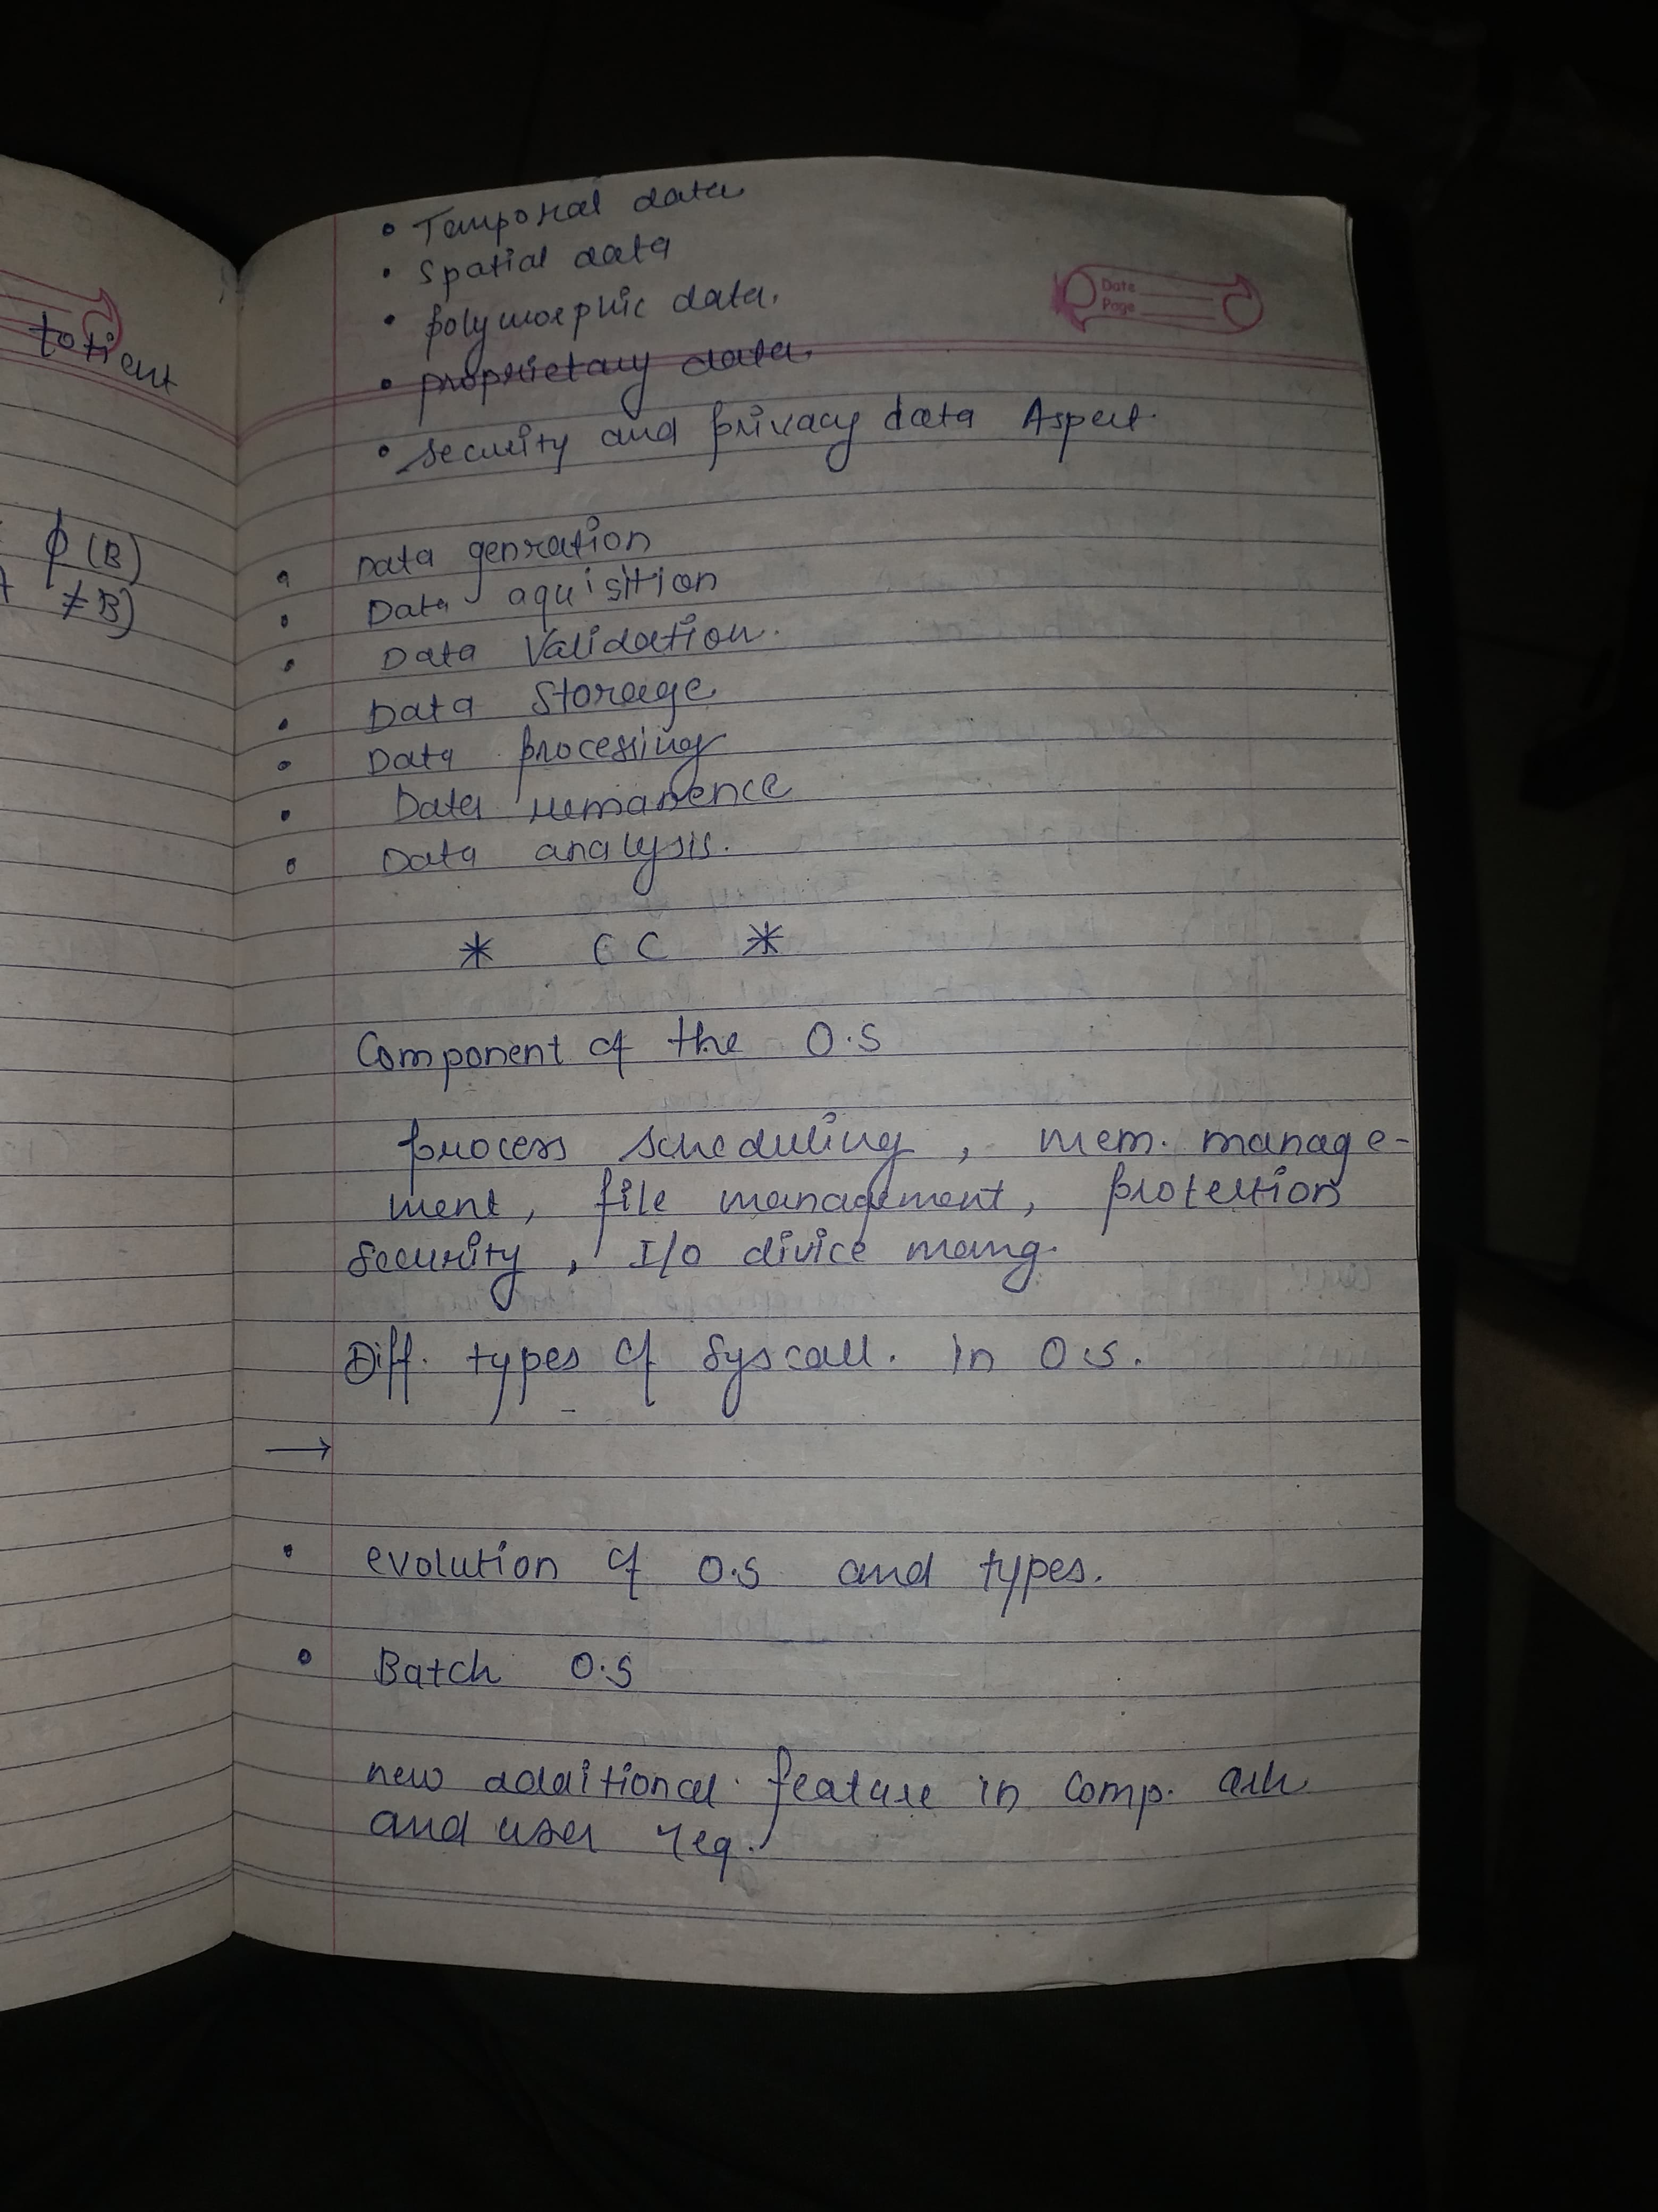 • Temporal data
• Spatial data
• polymorphic data.
Date
Page
• proprietary data.
• Security and privacy data Aspect.
totient
ϕ (B)
≠ B)
• Data genration
• Data aquisition
• Data Validation.
• Data Storage
• Data processing
• Data remanence
• Data analysis.
* CC *
Component of the O.S
process scheduling, mem. manage-
ment, file management, protection
security, I/o divice mang.
Diff. types of Syscall. in O.S.
→
• evolution of O.S and types.
• Batch O.S
new additional feature in comp. arh
and user req.